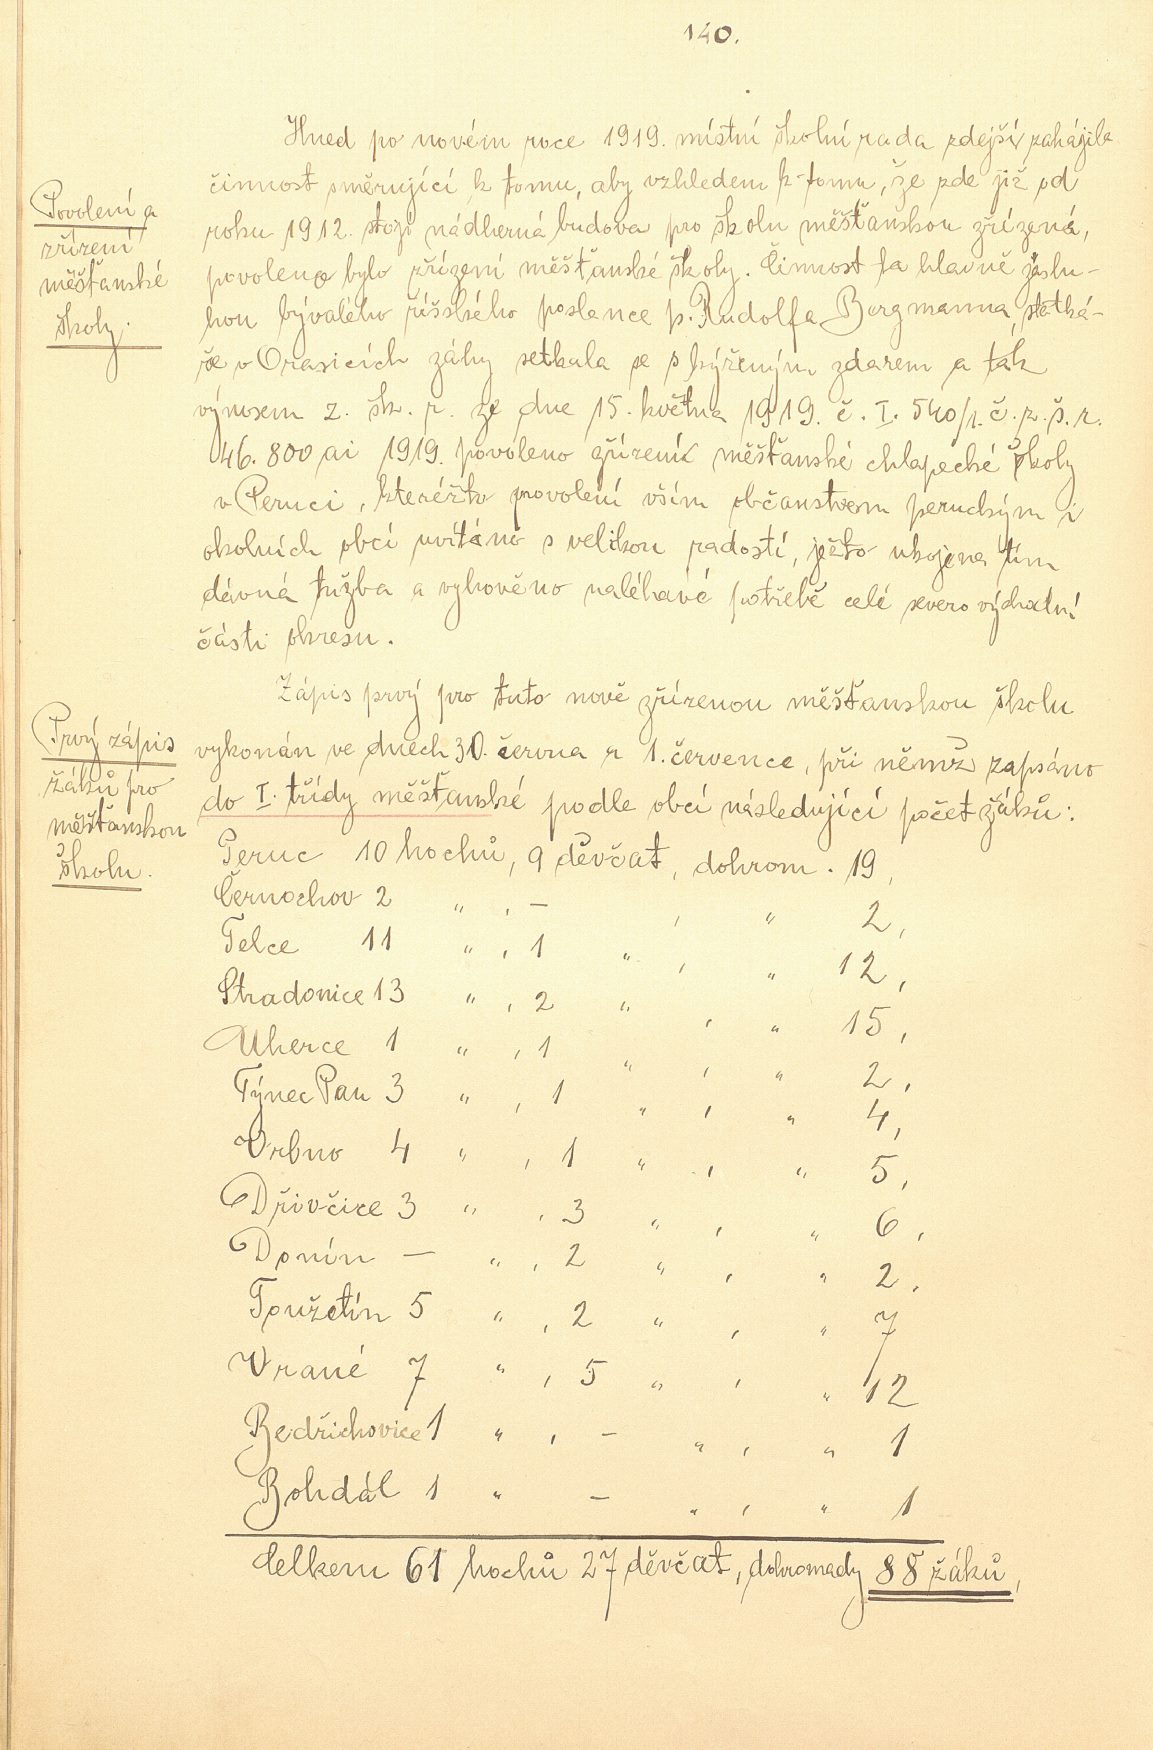 140.
Hned po novém roce 1919. místní školní rada zdejší zahájila
činnost směrující k tomu, aby vzhledem k tomu, že zde již od
roku 1912. stojí nádherná budova pro školu měšťanskou zřízená,
povoleno bylo zřízení měšťanské školy. Činnost ta hlavně záslu-
hou bývalého říšského poslance p. Rudolfa Bergmanna, statká-
ře v Orasicích záhy setkala se s kýženým zdarem a tak
výnosem z. šk. r. ze dne 15. května 1919. č. I. 540/1. č. z. š. r.
46.800 ai 1919. povoleno zřízení měšťanské chlapecké školy
v Peruci, kteréžto povolení vším občanstvem peruckým i
okolních obcí uvítáno s velikou radostí, ježto ukojena tím
dávná tužba a vyhověno naléhavé potřebě celé severovýchodní
části okresu.
Zápis prvý pro tuto nově zřízenou měšťanskou školu
vykonán ve dnech 30. června a 1. července, při němž zapsáno
do I. třídy měšťanské podle obcí následující počet žáků:
Povolení a
zřízení
měšťanské
školy.
Prvý zápis
žáků pro
měšťanskou
školu.
Peruc 10 hochů, 9 děvčat, dohrom. 19,
Černochov 2 " , – , " 2,
Telce 11 " , 1 " , " 12,
Stradonice 13 " , 2 " , " 15,
Uherce 1 " , 1 " , " 2,
Týnec Pan 3 " , 1 " , " 4,
Vrbno 4 " , 1 " , " 5,
Dřivčice 3 " , 3 " , " 6,
Donín – " , 2 " , " 2,
Toužetín 5 " , 2 " , " 7
Vrané 7 " , 5 " , " 12
Bedřichovice 1 " , – " , " 1
Bohdál 1 " – " , " 1
Celkem 61 hochů 27 děvčat, dohromady 88 žáků,